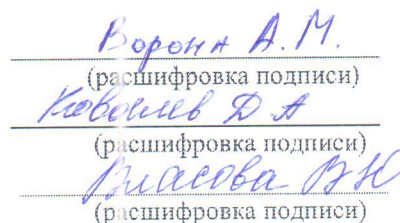 Ворона А.М.
(расшифровка подписи)
Ковалев Д А
(расшифровка подписи)
Власова В Ю
(расшифровка подписи)